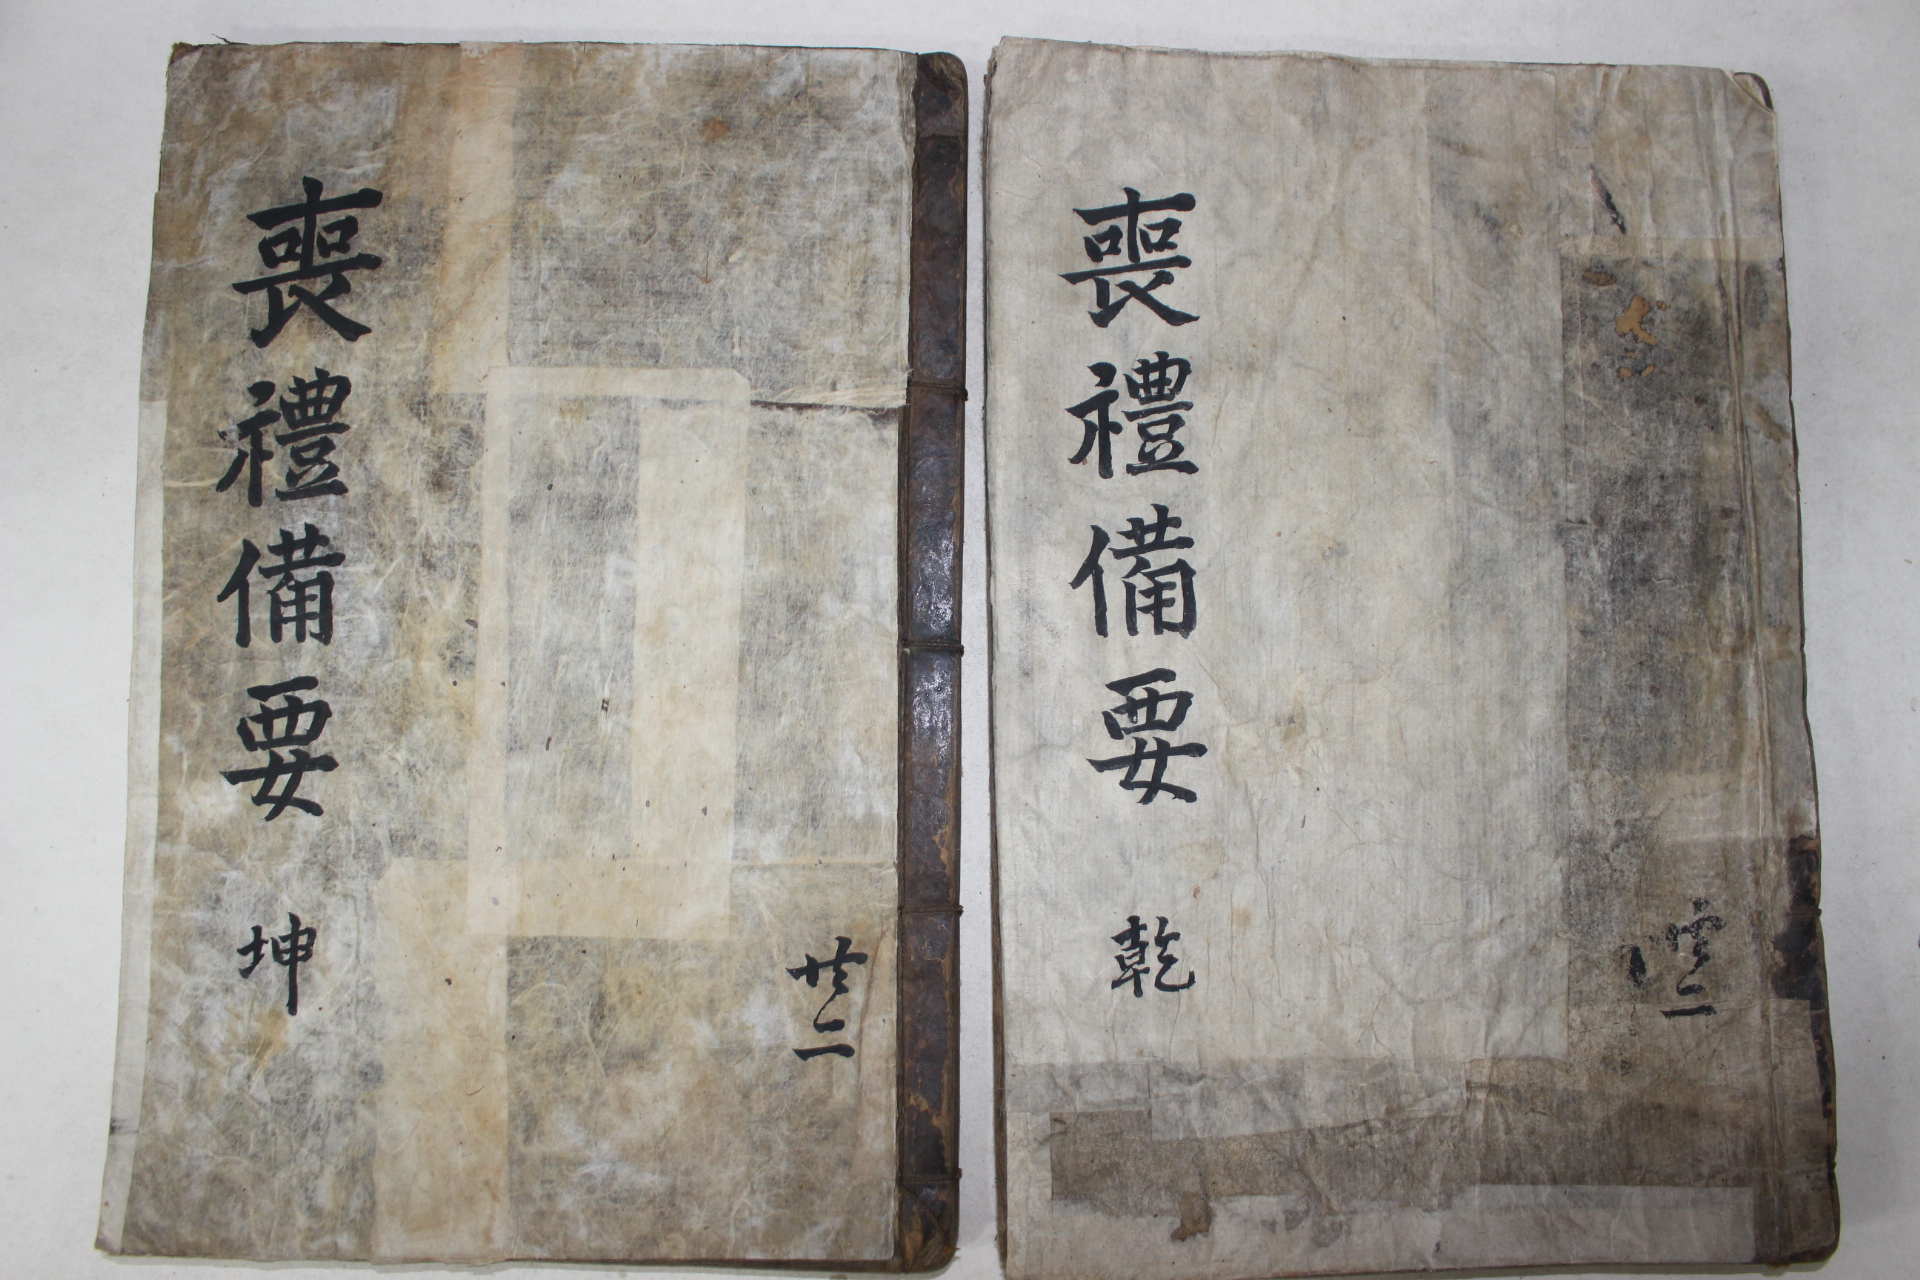 喪禮備要 乾
共二
喪禮備要 坤
共二